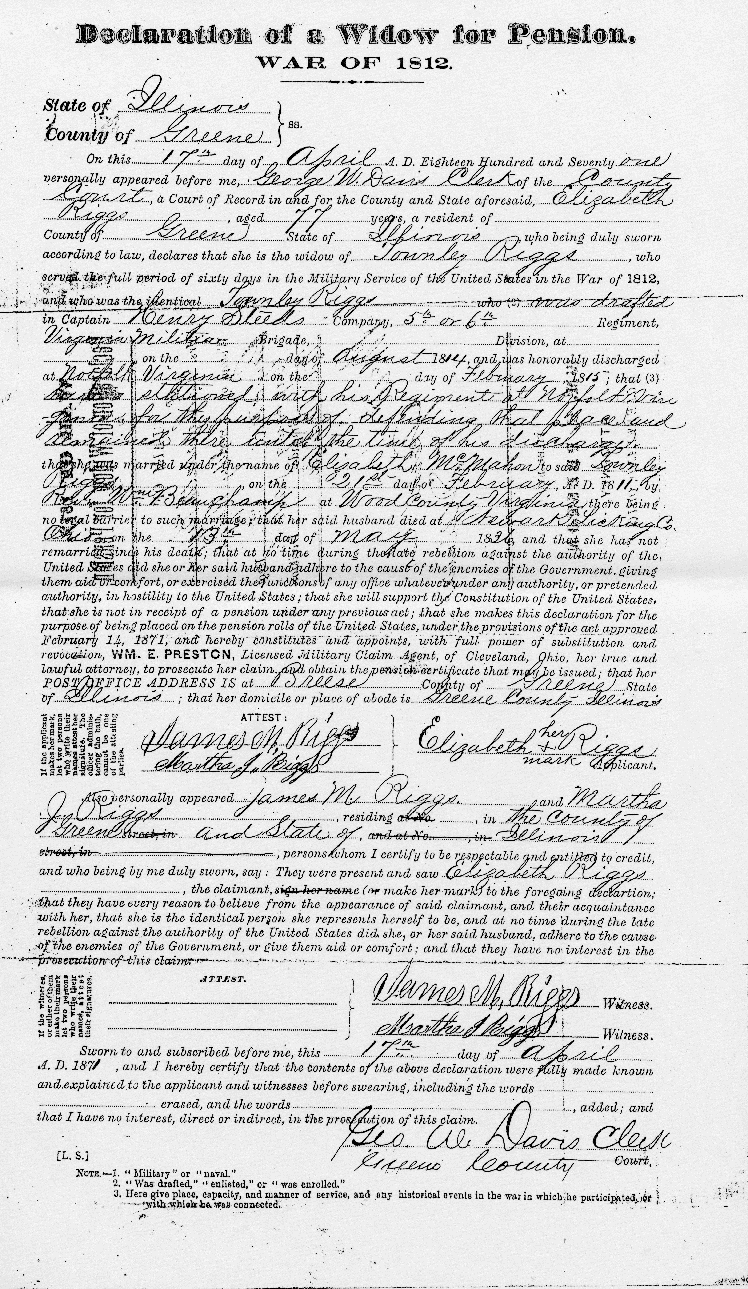 Declaration of a Widow for Pension.
WAR OF 1812.
State of Illinois
County of Greene } ss.
On this 17th day of April A. D. Eighteen Hundred and Seventy one
personally appeared before me, George W. Davis Clerk of the County
Court, a Court of Record in and for the County and State aforesaid, Elizabeth
Riggs, aged 77 years, a resident of
County of Greene State of Illinois, who being duly sworn
according to law, declares that she is the widow of Townley Riggs, who
served the full period of sixty days in the Military Service of the United States in the War of 1812,
and who was the identical Townley Riggs who was drafted
in Captain Henry Steeds Company, 5th or 6th Regiment,
Virginia Militia Brigade, Division, at
on the day of August 1814, and was honorably discharged
at Norfolk Virginia on the day of February 1815; that (3)
he was stationed with his Regiment at Norfolk
for the purpose of defending that place and
remained there until the time of his discharge.
that she was married under the name of Elizabeth McMahon to said Townley
Riggs on the 21st day of February, A. D. 1811, by
Wm Beauchamp at Wood County Virginia, there being
no legal barrier to such marriage; that her said husband died at Newark Licking Co.
Ohio on the 13th day of May 1826, and that she has not
remarried since his death; that at no time during the late rebellion against the authority of the
United States did she or her said husband adhere to the cause of the enemies of the Government, giving
them aid or comfort, or exercised the functions of any office whatever under any authority, or pretended
authority, in hostility to the United States; that she will support the Constitution of the United States,
that she is not in receipt of a pension under any previous act; that she makes this declaration for the
purpose of being placed on the pension rolls of the United States, under the provisions of the act approved
February 14, 1871, and hereby constitutes and appoints, with full power of substitution and
revocation, WM. E. PRESTON, Licensed Military Claim Agent, of Cleveland, Ohio, her true and
lawful attorney, to prosecute her claim and obtain the pension certificate that may be issued; that her
POST OFFICE ADDRESS IS at Breese County of Greene State
of Illinois; that her domicile or place of abode is Greene County Illinois
If the applicant
makes her mark,
let two persons
who write their
names attest her
signature. The
cannot be one
of the attesting
parties.
ATTEST:
James M. Riggs
Martha J. Riggs
Elizabeth her + mark Riggs
Applicant.
Also personally appeared James M Riggs. and Martha
J Riggs, residing at No., in the County of
Greene street, in and State of, and at No., in Illinois
street, in, persons whom I certify to be respectable and entitled to credit,
and who being by me duly sworn, say: They were present and saw Elizabeth Riggs
, the claimant, sign her name (or make her mark) to the foregoing declartion;
that they have every reason to believe from the appearance of said claimant, and their acquaintance
with her, that she is the identical person she represents herself to be, and at no time during the late
rebellion against the authority of the United States did she, or her said husband, adhere to the cause
of the enemies of the Government, or give them aid or comfort; and that they have no interest in the
prosecution of this claim.
If the witnesses,
or either of them
make their mark
let two persons
who write their
names, attest
their signatures.
ATTEST.
James M, Riggs Witness.
Martha J Riggs Witness.
Sworn to and subscribed before me, this 17th day of April
A. D. 1871, and I hereby certify that the contents of the above declaration were fully made known
and explained to the applicant and witnesses before swearing, including the words
erased, and the words, added; and
that I have no interest, direct or indirect, in the prosecution of this claim.
Geo W Davis Clerk
[L. S.]
Greene County Court.
NOTE.—1. "Military" or "naval."
2. "Was drafted," "enlisted," or "was enrolled."
3. Here give place, capacity, and manner of service, and any historical events in the war in which he participated, or
with which he was connected.